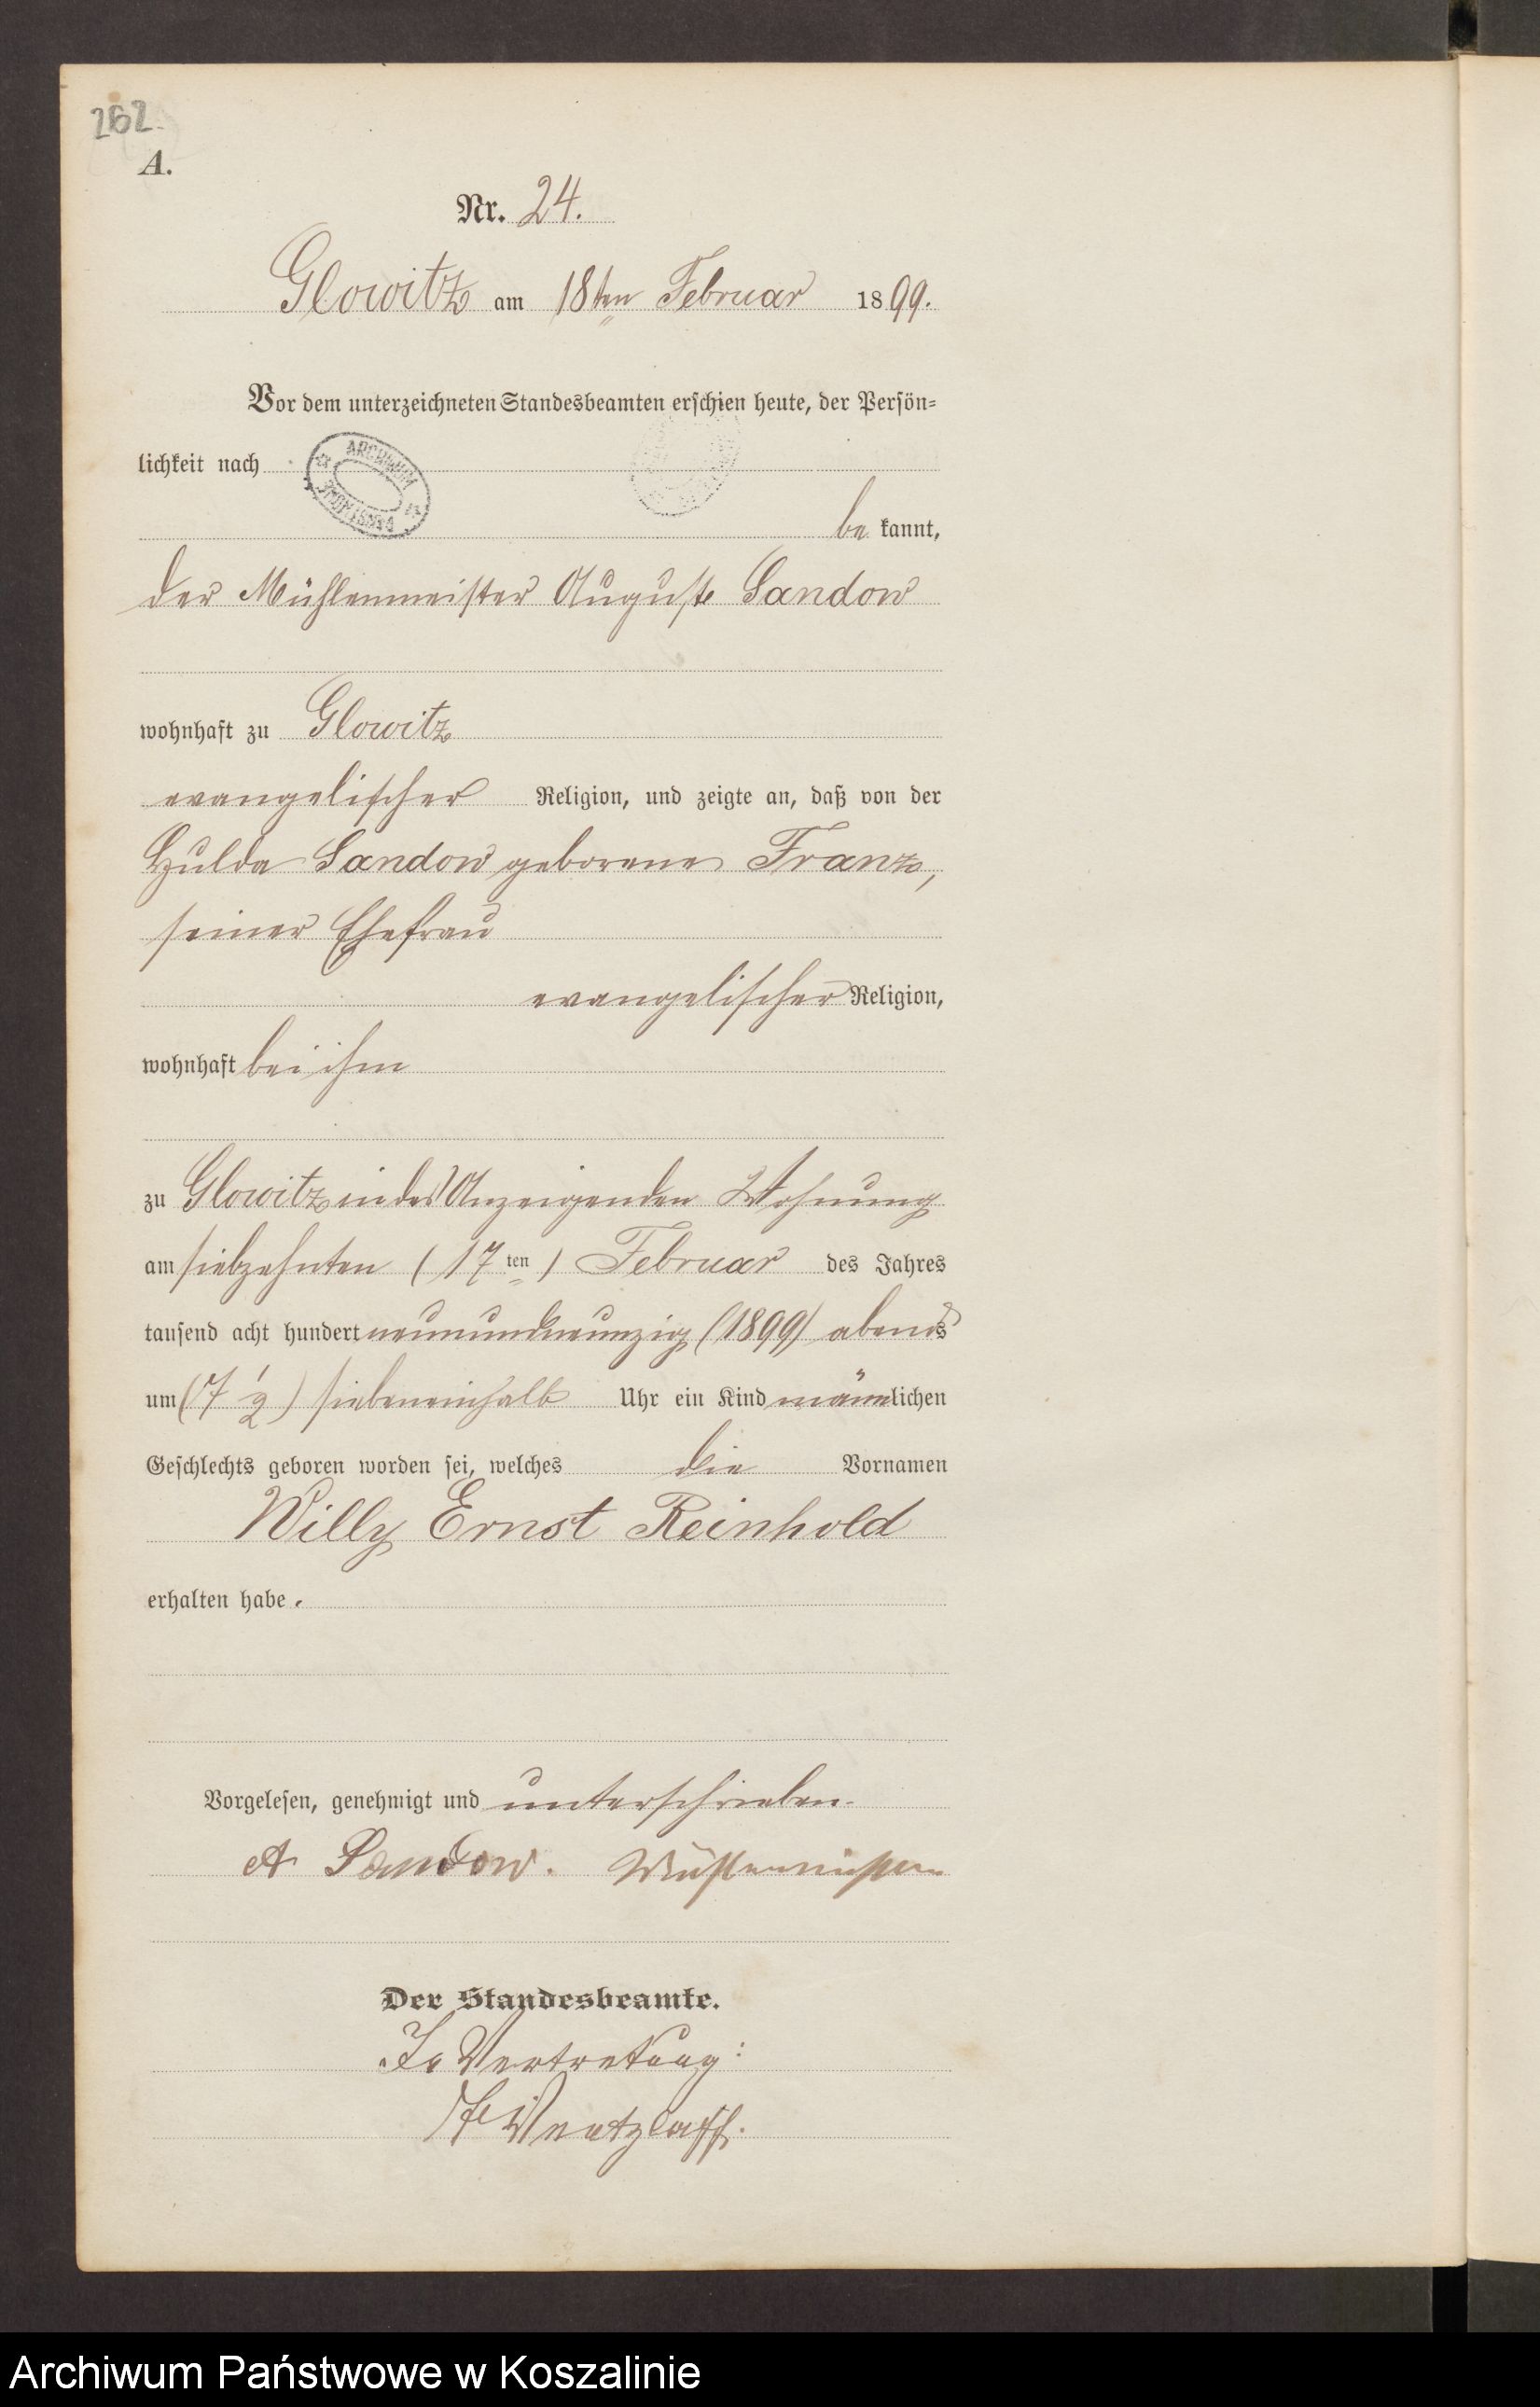 262.
A.
Nr. 24.
Glowitz am 18ten Februar 1899.
Vor dem unterzeichneten Standesbeamten erschien heute, der Persön-
lichkeit nach
ARCHIWUM
be kannt,
der Mühlenmeister August Sandow
wohnhaft zu Glowitz
evangelischer Religion, und zeigte an, daß von der
Hulda Sandow geborene Franz,
seiner Ehefrau
evangelischer Religion,
wohnhaft bei ihm
zu Glowitz in des Anzeigenden Wohnung
am siebzehnten (17ten) Februar des Jahres
tausend acht hundert neunundneunzig (1899) abends
um (7 1/2) siebeneinhalb Uhr ein Kind männlichen
Geschlechts geboren worden sei, welches die Vornamen
Willy Ernst Reinhold
erhalten habe.
Vorgelesen, genehmigt und unterschrieben.
A Sandow. Mühlenmeister
Der Standesbeamte.
In Vertretung:
Wentzlaff.
Archiwum Państwowe w Koszalinie